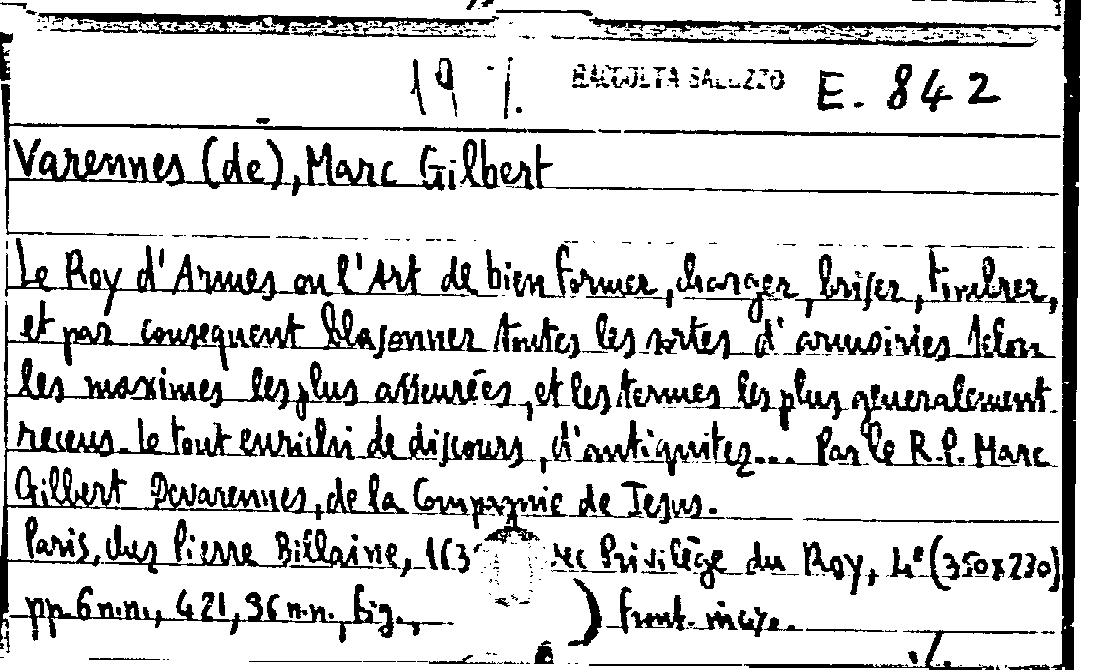 19 %. RACCOLTA SALUZZO E. 842
Varennes (de), Marc Gilbert
Le Roy d'Armes ou l'Art de bien former, charger, briser, timbrer,
et par consequent blasonner toutes les sortes d'armoiries selon
les maximes les plus asseurées, et les termes les plus generalement
receus. Le tout enrichi de discours, d'antiquitez... Par le R.P. Marc
Gilbert Devarennes, de la Compagnie de Jesus.
Paris, chez Pierre Billaine, Privilège du Roy, 4° (350x230)
pp. 6 n.n., 421, 36 n.n., fig., ) front. inciso.